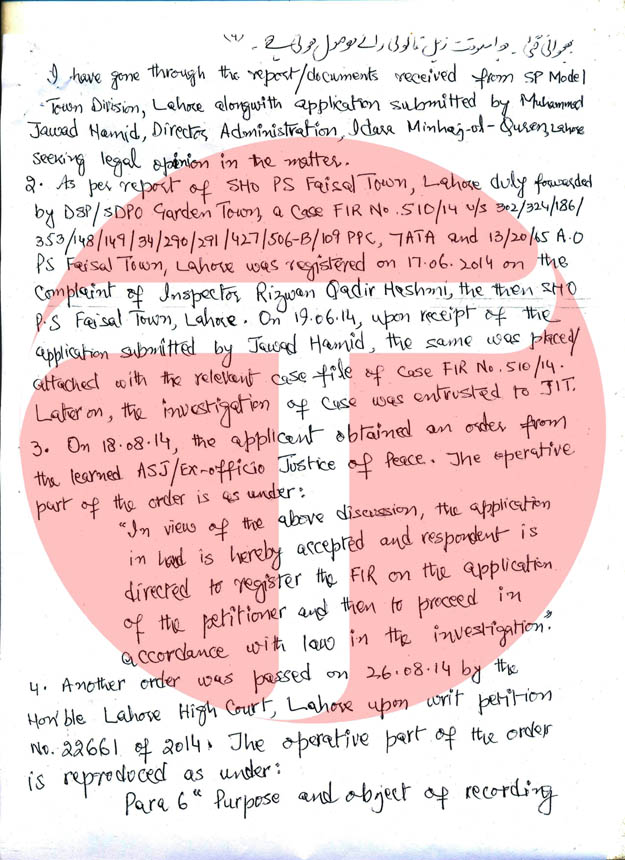 (۹)
بحوالہ فیکس ۔ جواب صورت ذیل قانونی رائے موصول ہوئی ہے ۔
I have gone through the report/documents received from SP Model
Town Division, Lahore alongwith application submitted by Muhammad
Jawad Hamid, Director Administration, Idara Minhaj-ul-Quran, Lahore
seeking legal opinion in the matter.
2. As per report of SHO PS Faisal Town, Lahore duly forwarded
by DSP/SDPO Garden Town, a Case FIR No. 510/14 u/s 302/324/186/
353/148/149/34/290/291/427/506-B/109 PPC, 7ATA and 13/20/65 A.O
PS Faisal Town, Lahore was registered on 17.06.2014 on the
Complaint of Inspector Rizwan Qadir Hashmi, the then SHO
P.S Faisal Town, Lahore. On 19.06.14, upon receipt of the
application submitted by Jawad Hamid, the same was placed/
attached with the relevant case file of Case FIR No. 510/14.
Later on, the investigation of case was entrusted to JIT.
3. On 18.08.14, the applicant obtained an order from
the learned ASJ/Ex-officio Justice of Peace. The operative
part of the order is as under:
"In view of the above discussion, the application
in hand is hereby accepted and respondent is
directed to register the FIR on the application
of the petitioner and then to proceed in
accordance with law in the investigation."
4. Another order was passed on 26.08.14 by the
Hon'ble Lahore High Court, Lahore upon writ petition
No. 22661 of 2014. The operative part of the order
is reproduced as under:
Para 6 "Purpose and object of recording